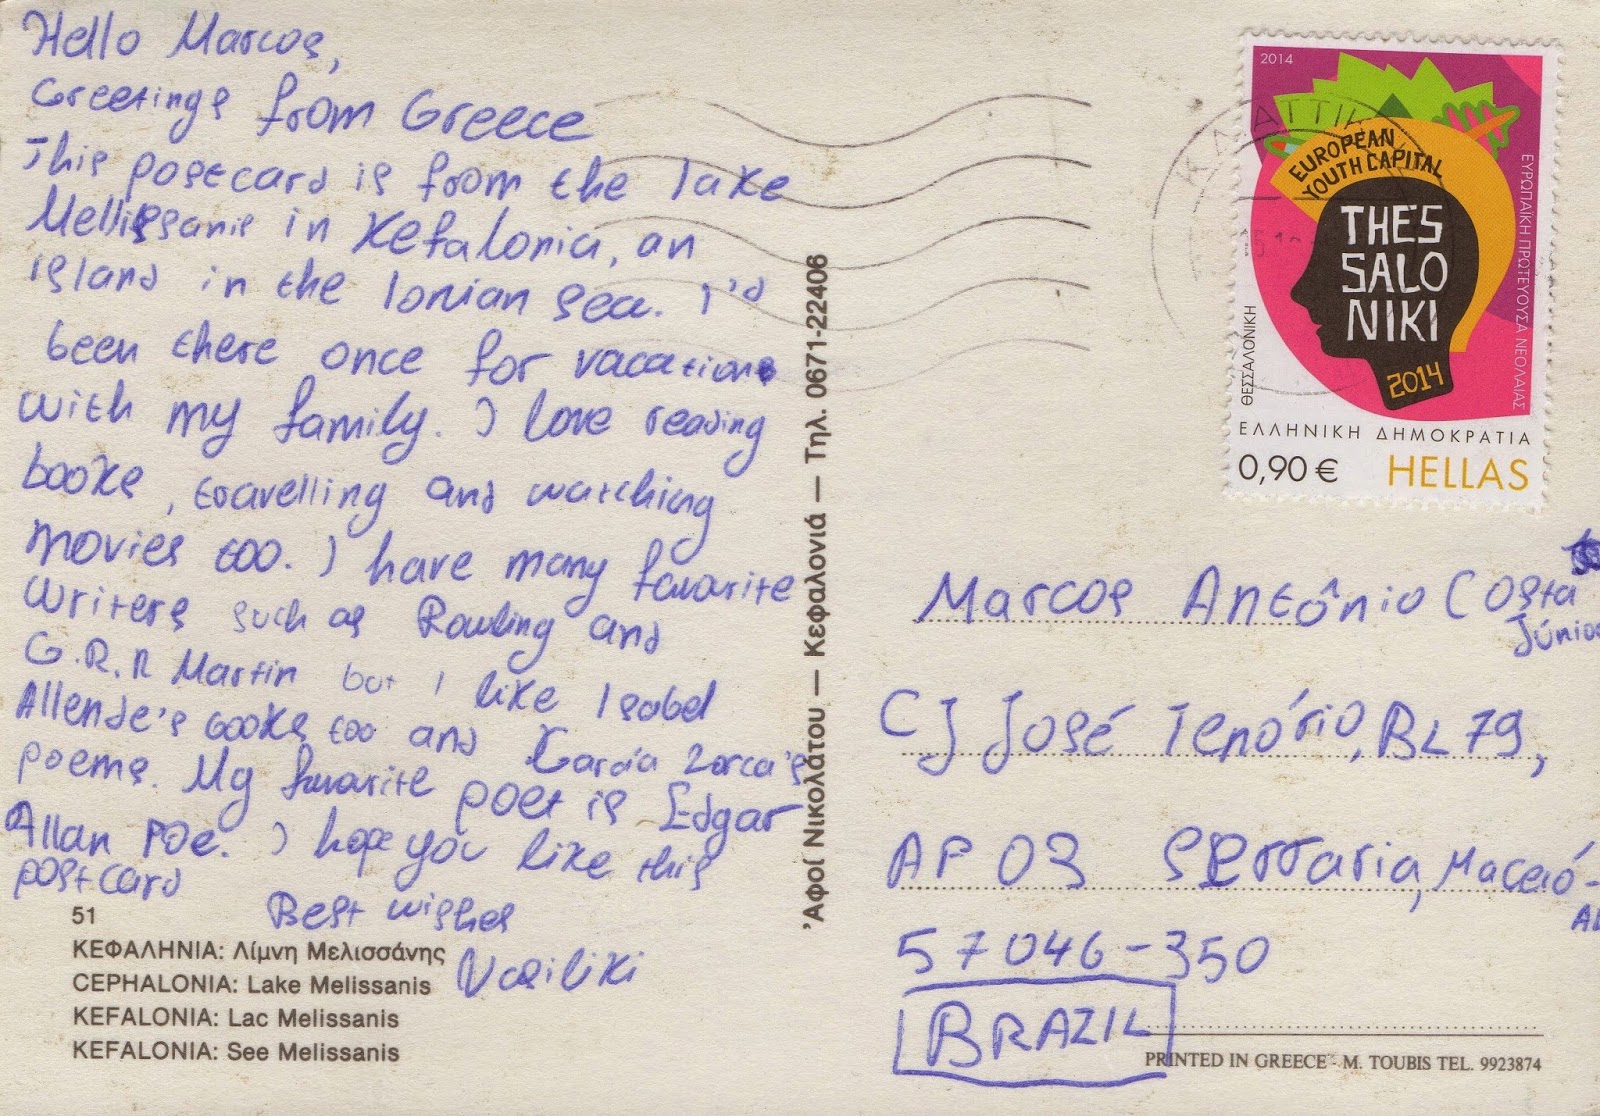 Hello Marcos,
Greetings from Greece
This postcard is from the lake
Mellissanis in Kefalonia, an
island in the Ionian sea. I'd
been there once for vacations
with my family. I love reading
books, travelling and watching
movies too. I have many favourite
writers such as Rowling and
G.R.R Martin but I like Isabel
Allende's books too and Garcia Lorca's
poems. My favourite poet is Edgar
Allan Poe. I hope you like this
postcard
Best wishes
Vasiliki
51
ΚΕΦΑΛΗΝΙΑ: Λίμνη Μελισσάνης
CEPHALONIA: Lake Melissanis
KEFALONIA: Lac Melissanis
KEFALONIA: See Melissanis
'Αφοί Νικολάτου — Κεφαλονιά — Τηλ. 0671-22406
2014
EUROPEAN
YOUTH CAPITAL
THES
SALO
NIKI
2014
ΘΕΣΣΑΛΟΝΙΚΗ
ΕΥΡΩΠΑΪΚΗ ΠΡΩΤΕΥΟΥΣΑ ΝΕΟΛΑΙΑΣ
ΕΛΛΗΝΙΚΗ ΔΗΜΟΚΡΑΤΙΑ
0,90 € HELLAS
Marcos Antônio Costa
Júnior
CJ José Tenório, BL 79,
AP 03 Serraria, Maceió-
AL
57046-350
BRAZIL
PRINTED IN GREECE - M. TOUBIS TEL. 9923874